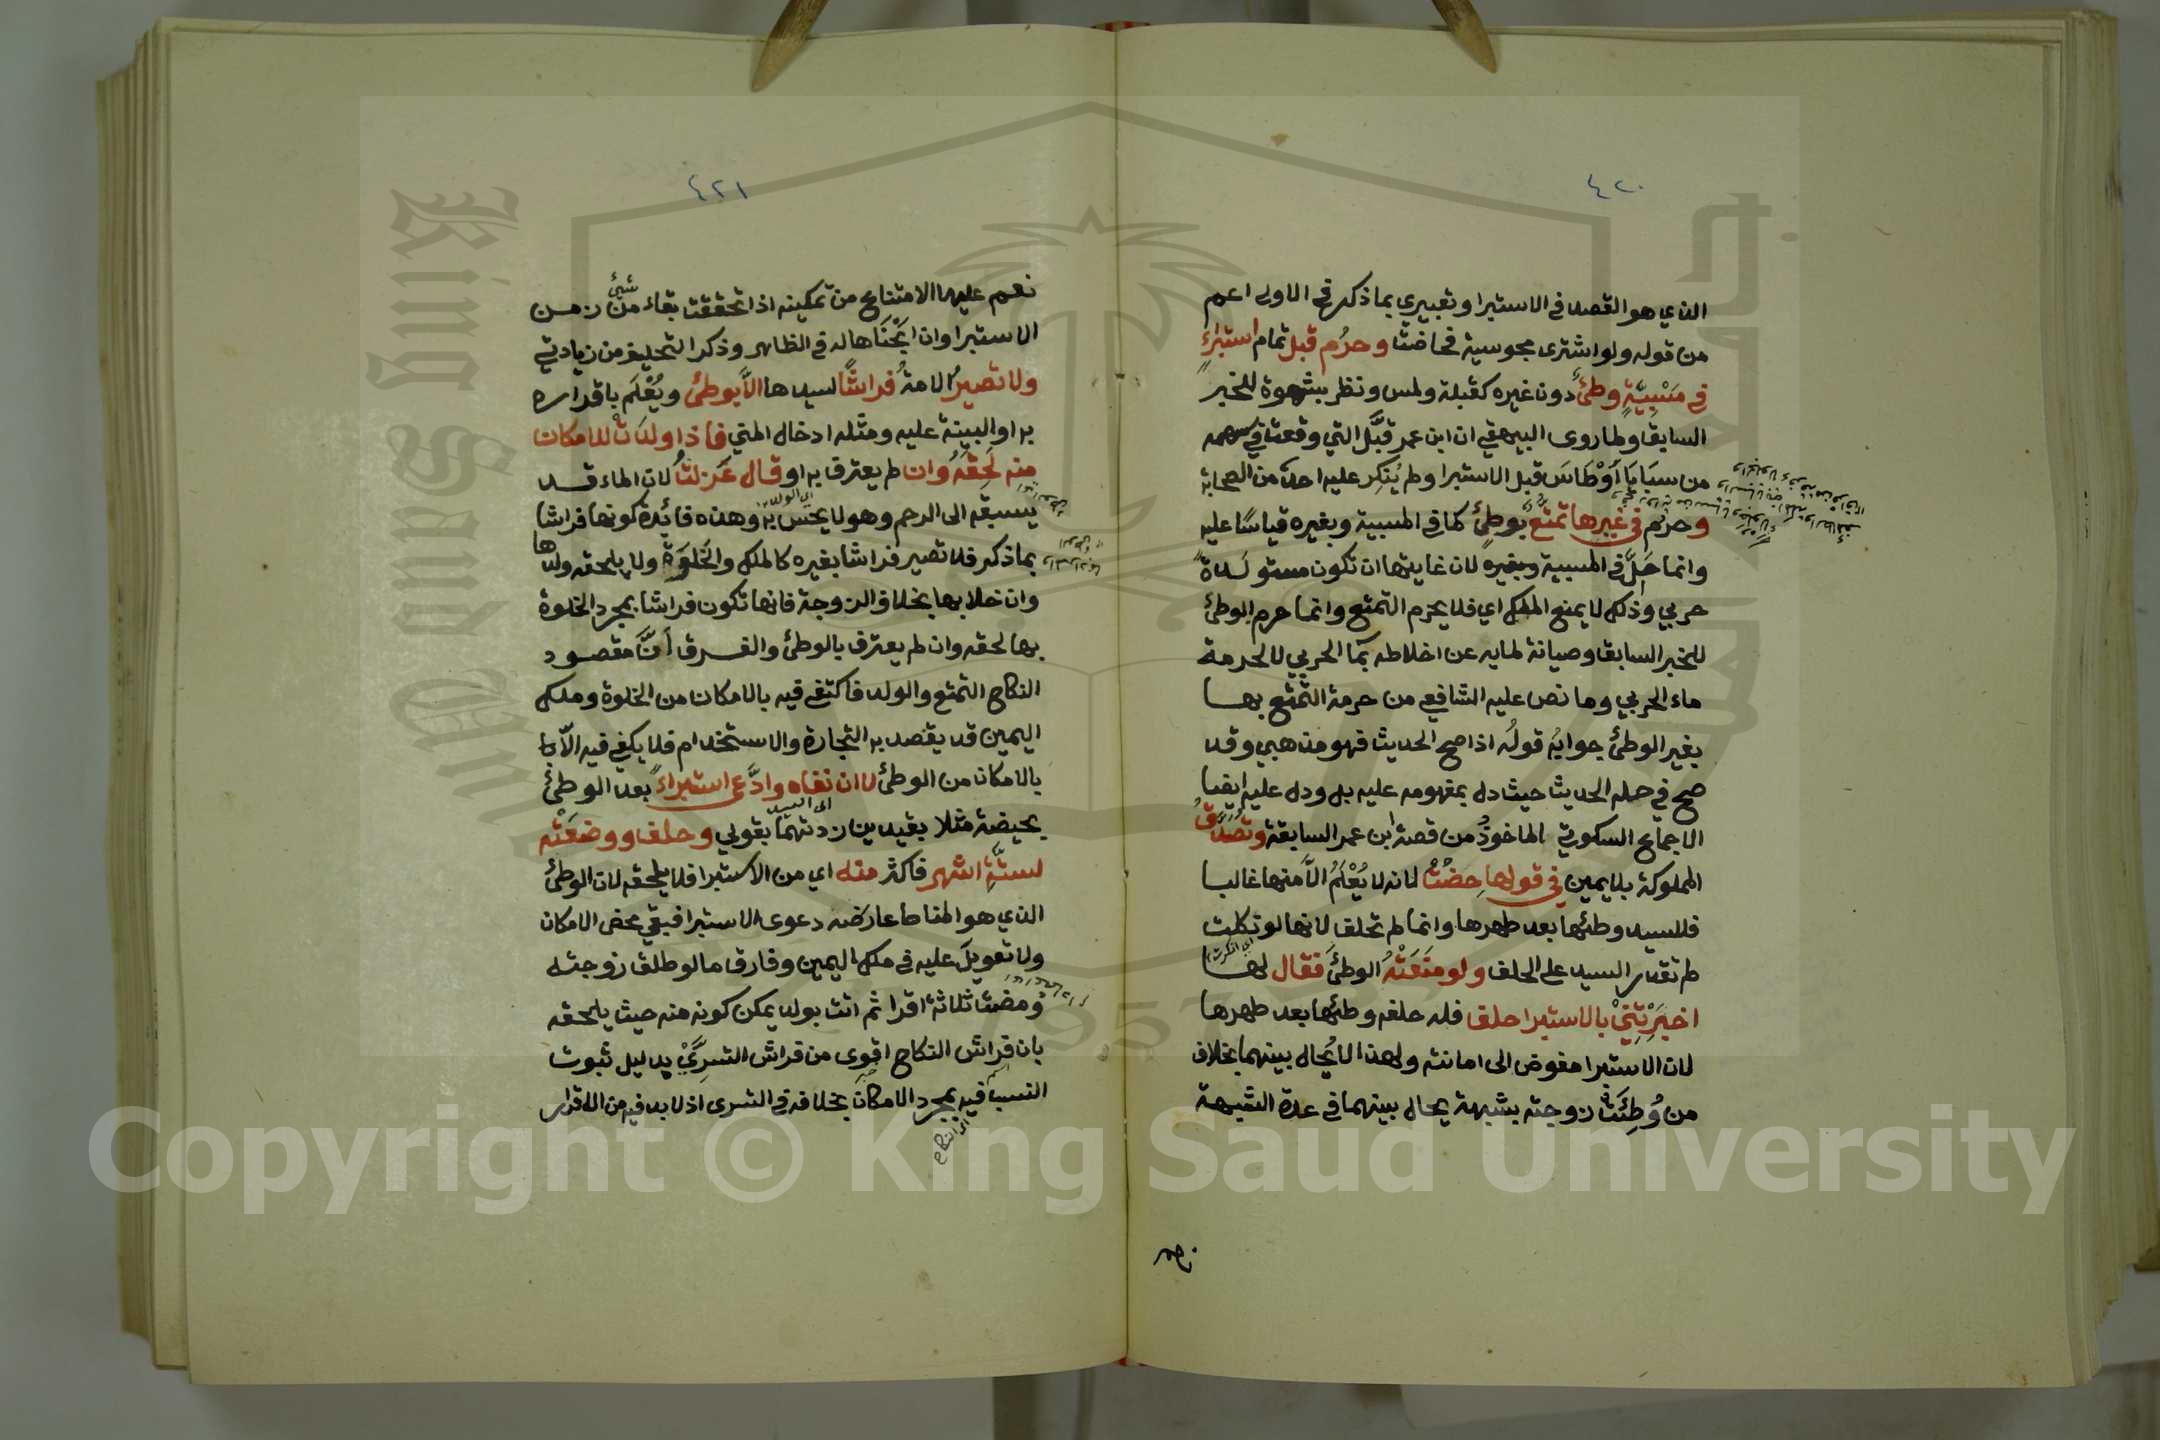 ٤٢٠
الذي هو القصد في الاستبرا وتعبيري بما ذكر في الاولى اعم
من قوله ولو اشترى مجوسية فحاضت وحرُم قبل تمام استبراءٍ
في مَسْبِيَّةٍ وطئٌ دون غيره كقبلة ولمس ونظر بشهوة للخبر
السابق ولما روى البيهقي ان ابن عمر قبَّل التي وقعت في سهمه
من سَبَايَا أَوْطَاسَ قبل الاستبرا ولم يُنكِر عليه احدٌ من الصحابة
وحرُم في غيرها تمتعٌ بوطئٍ كما في المسبية وبغيره قياسًا عليه
وانما حَلَّ في المسبية وبغيره لان غايتها ان تكون مستولَدةً
حربي وذلك لا يمنع الملك اي فلا يحرم التمتع وانما حرم الوطئ
للخبر السابق وصيانة لمايه عن اختلاطه بمآ الحربي لا لحرمة
ماء الحربي وما نص عليه الشافعي من حرمة التمتع بها
بغير الوطئ جوابُه قولُه اذا صح الحديث فهو مذهبي وقد
صح في حله الحديث حيث دل بمفهومه عليه بل ودل عليه ايضا
الاجماع السكوتي الماخوذُ من قصة ابن عمر السابقة وتُصَدَّقُ
المملوكة بلا يمين في قولها حِضْتُ لانه لا يُعْلَمُ الَّا منها غالبا
فللسيد وطئها بعد طهرها وانما لم تحلف لانها لو نكلت
لم يقدر السيد على الحلف ولو منَعَتْهُ الوطئَ فقال لها
اخبَرْتِنِيْ بالاستبرا حلف فله حلفه وطئها بعد طهرها
لان الاستبرا مفوض الى امانته ولهذا لا يُحال بينهما بخلاف
من وُطِئَت زوجته بشبهة يحال بينهما في عدة الشبهة
نعم
٤٢١
نعم عليها الامتناع من تمكينه اذا تحققت بقاء شيئ من زمن
الاستبرا وان ابَحْنَاها له في الظاهر وذكر التحليف من زيادتي
ولا تصيرُ الامةُ فراشًا لسيدها الَّا بوطئ ويُعْلَم باقراره
به او البينة عليه ومثله ادخال المني فاذا ولدَتْ للامكان
منه لَحِقَهُ وان لم يعترف به او قال عَزلتُ لان الماء قد
يسبقه الى الرحم وهو لا يحس به وهذه فائدة كونها فراشا
بما ذكر فلا تصير فراشا بغيره كالملك والخَلوَة ولا يلحقه ولدها
وان خلا بها بخلاف الزوجة فانها تكون فراشا بمجرد الخلوة
بها لحقه وان لم يعترف بالوطئ والفرق أنَّ مقصود
النكاح التمتع والولد فاكتفي فيه بالامكان من الخلوة وملك
اليمين قد يقصد به التجارة والاستخدام فلا يكفي فيه الّا
بالامكان من الوطئ لا ان نفاه وادَّعى استبراءً بعد الوطئ
بحيضة مثلا بقيدين زدتهما بقولي وحلف ووضعَتْه
لستَّةِ اشهر فاكثر منه اي من الاستبرا فلا يلحقه لان الوطئ
الذي هو المناط عارضه دعوى الاستبرا فبقي محض الامكان
ولا تعويلَ عليه في ملك اليمين وفارق ما لو طلق زوجته
ومضت ثلاثة اقرا ثم اتت بولد يمكن كونه منه حيث يلحقه
بان فراش النكاح اقوى من فراش التسرِّيْ بدليل ثبوت
النسب فيه بمجرد الامكان بخلافه في التسرى اذ لا بد فيه من الاقرار
اي الولد
اي السيد
اي النكاح
Copyright © King Saud University
King Saud University
1957